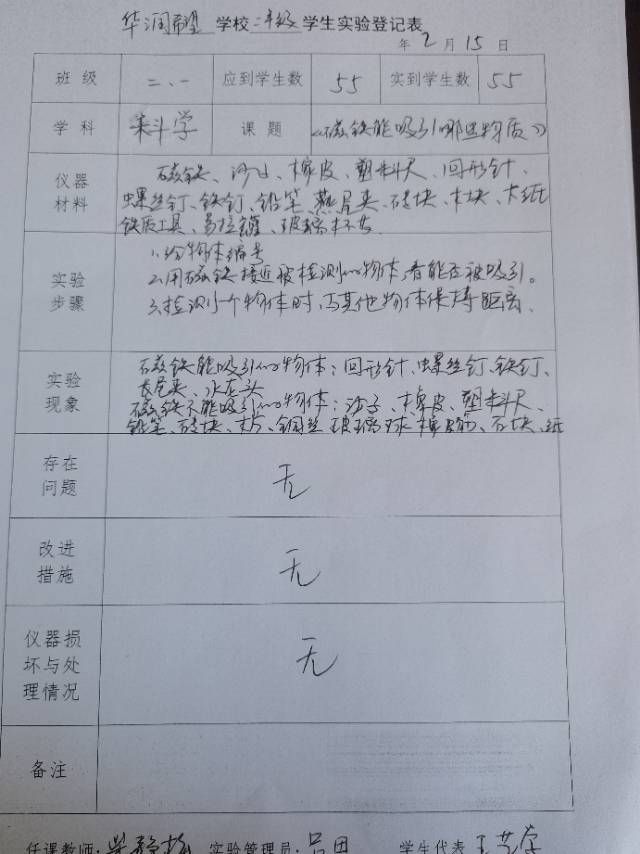 华润希望 学校 二年级 学生实验登记表
年 2 月 15 日
班级 二、一 应到学生数 55 实到学生数 55
学科 科学 课题 《磁铁能吸引哪些物质》
仪器材料 磁铁、沙子、橡皮、塑料尺、回形针、
螺丝钉、铁钉、铅笔、燕尾夹、砖块、木块、卡纸
铁质工具、易拉罐、玻璃杯等
实验步骤 1.给物体编号
2.用磁铁接近被检测的物体,看能否被吸引。
3.检测1个物体时,与其他物体保持距离.
实验现象 磁铁能吸引的物体:回形针、螺丝钉、铁钉、
长尾夹、水龙头
磁铁不能吸引的物体:沙子、橡皮、塑料尺、
铅笔、砖块、木片、铜丝、玻璃球、橡皮筋、石块、纸
存在问题 无
改进措施 无
仪器损坏与处理情况 无
备注
任课教师: 实验管理员:吕田 学生代表 王艺